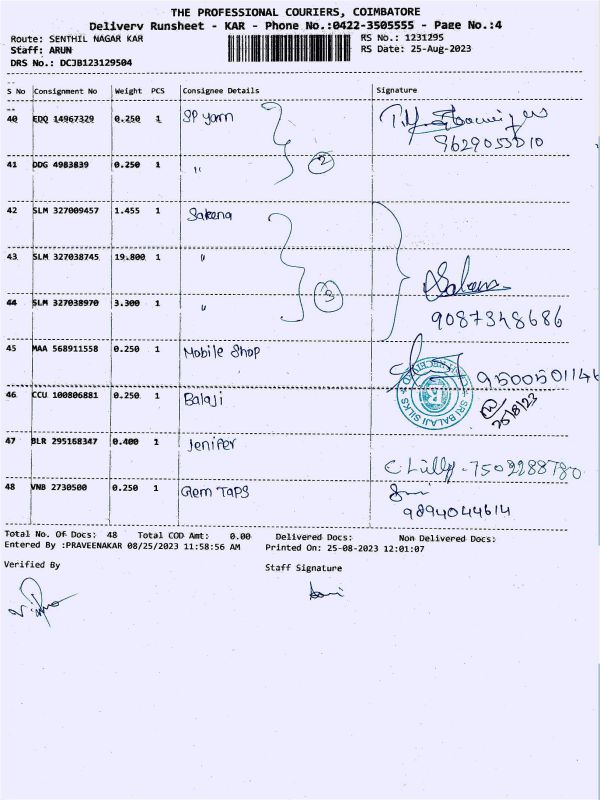 THE PROFESSIONAL COURIERS, COIMBATORE
Delivery Runsheet - KAR - Phone No.:0422-3505555 - Page No.:4
Route: SENTHIL NAGAR KAR RS No.: 1231295
Staff: ARUN RS Date: 25-Aug-2023
DRS No.: DCJB123129504
S No Consignment No Weight PCS Consignee Details Signature
40 EDQ 14967329 0.250 1 SP yarn
9629053010
41 DDG 4983839 0.250 1 " 2
42 SLM 327009457 1.455 1 Sakena
43 SLM 327038745 19.800 1 "
44 SLM 327038970 3.300 1 " 3
9087348686
45 MAA 568911558 0.250 1 Mobile Shop
9500501146
46 CCU 100806881 0.250 1 Balaji
SRI BALAJI SILKS RECEIVED
25/8/23
47 BLR 295168347 0.400 1 Jenifer
C Lilly - 7502288780
48 VNB 2730500 0.250 1 Gem Taps
9894044614
Total No. Of Docs: 48 Total COD Amt: 0.00 Delivered Docs: Non Delivered Docs:
Entered By :PRAVEENAKAR 08/25/2023 11:58:56 AM Printed On: 25-08-2023 12:01:07
Verified By Staff Signature